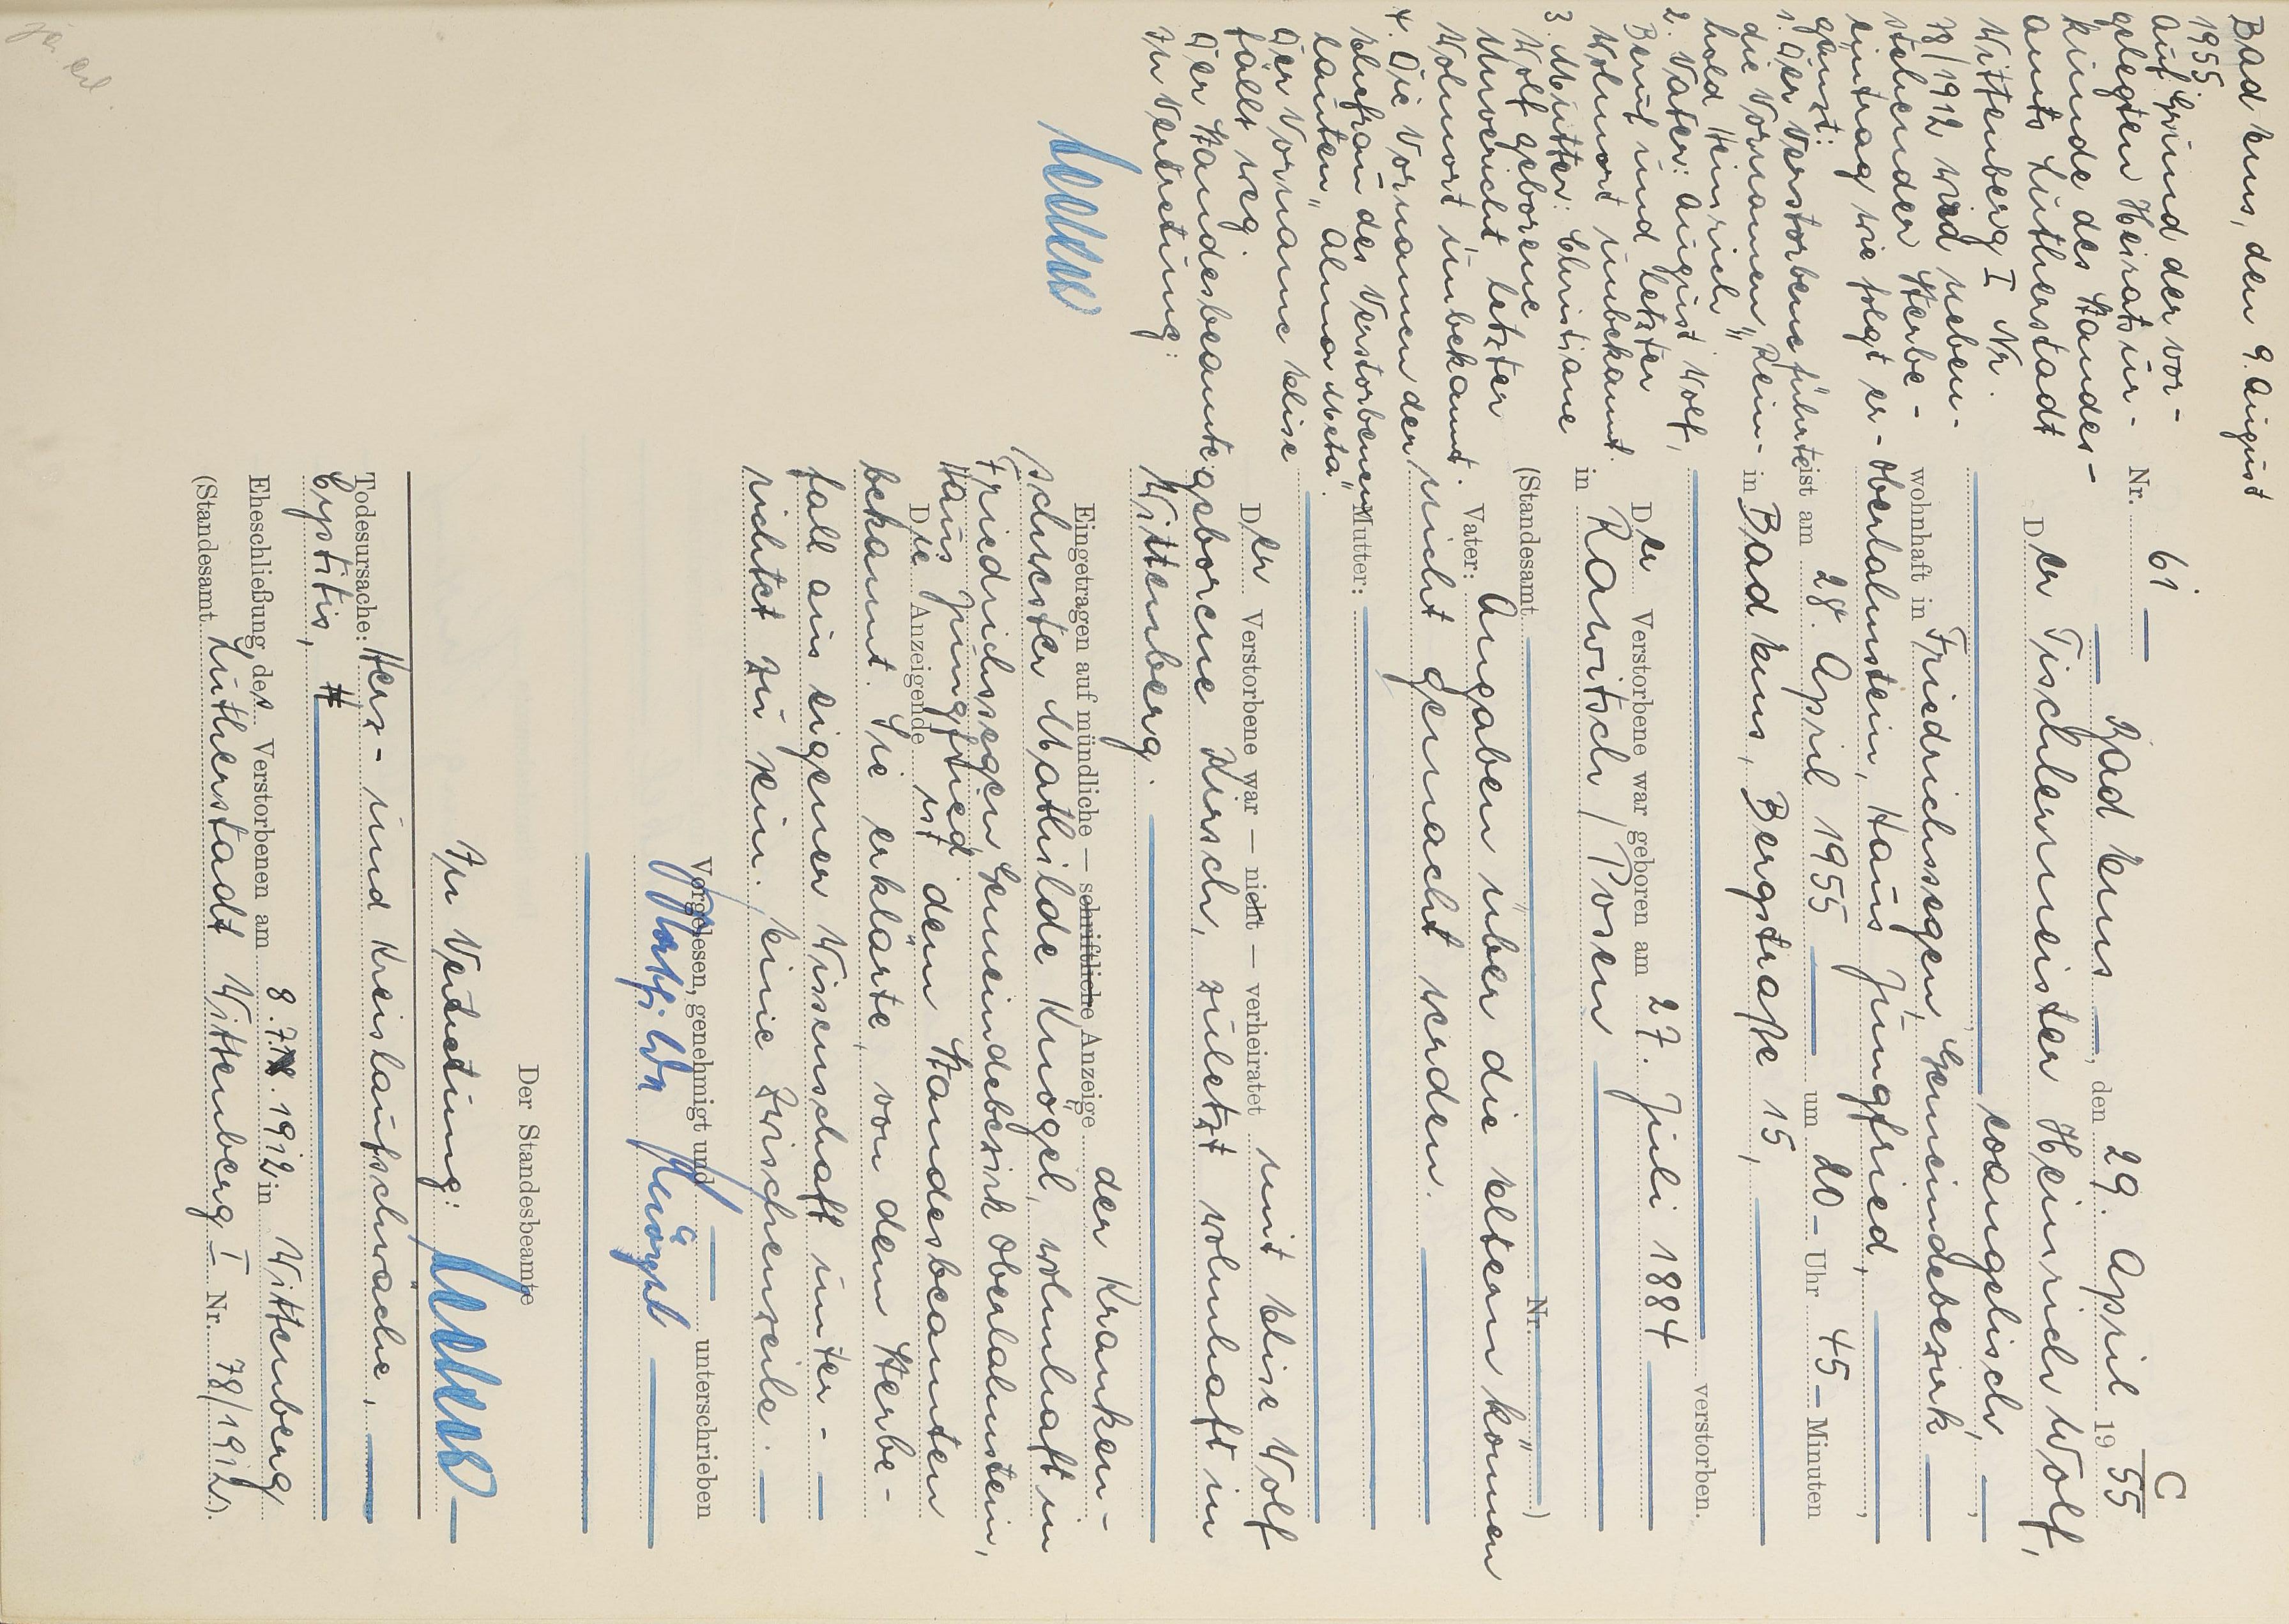 C
Nr. 61
Bad Ems, den 29. April 1955
Der Tischlermeister Heinrich Wolf,
evangelisch,
wohnhaft in Friedrichssegen, Gemeindebezirk
Oberlahnstein, Haus Jungfried,
ist am 28. April 1955 um 20 Uhr 45 Minuten
in Bad Ems, Bergstraße 15,
verstorben.
Der Verstorbene war geboren am 27. Juli 1884
in Rawitsch / Posen
(Standesamt Nr. )
Vater: Angaben über die Eltern können
nicht gemacht werden.
Mutter:
Der Verstorbene war — nicht — verheiratet mit Elise Wolf
geborene Kirsch, zuletzt wohnhaft in
Wittenberg.
Eingetragen auf mündliche — schriftliche Anzeige der Kranken-
schwester Mathilde Knögel, wohnhaft in
Friedrichssegen, Gemeindebezirk Oberlahnstein,
Haus Jungfried.
Die Anzeigende ist dem Standesbeamten
bekannt. Sie erklärte, von dem Sterbe-
fall aus eigener Wissenschaft unter-
richtet zu sein. Eine Zwischenzeile.
Vorgelesen, genehmigt und unterschrieben
Mathilde Knögel
Der Standesbeamte
In Vertretung:
Todesursache: Herz- und Kreislaufschwäche,
Cystitis,
Eheschließung des Verstorbenen am 8.7.1912 in Wittenberg
(Standesamt Lutherstadt Wittenberg I Nr. 78/1912)
Bad Ems, den 9. August
1955
Auf Grund der vor-
gelegten Heiratsur-
kunde des Standes-
amts Lutherstadt
Wittenberg I Nr.
78/1912 wird neben-
stehender Sterbe-
eintrag wie folgt er-
gänzt:
1. Der Verstorbene führte
die Vornamen „Rein-
hold Heinrich“
2. Vater: August Wolf,
Beruf und letzter
Wohnort unbekannt.
3. Mutter: Christiane
Wolf geborene
Unverricht letzter
Wohnort unbekannt.
4. Die Vornamen der
Ehefrau des Verstorbenen
lauten „Alma Meta“.
Der Vorname Elise
fällt weg.
Der Standesbeamte
In Vertretung: